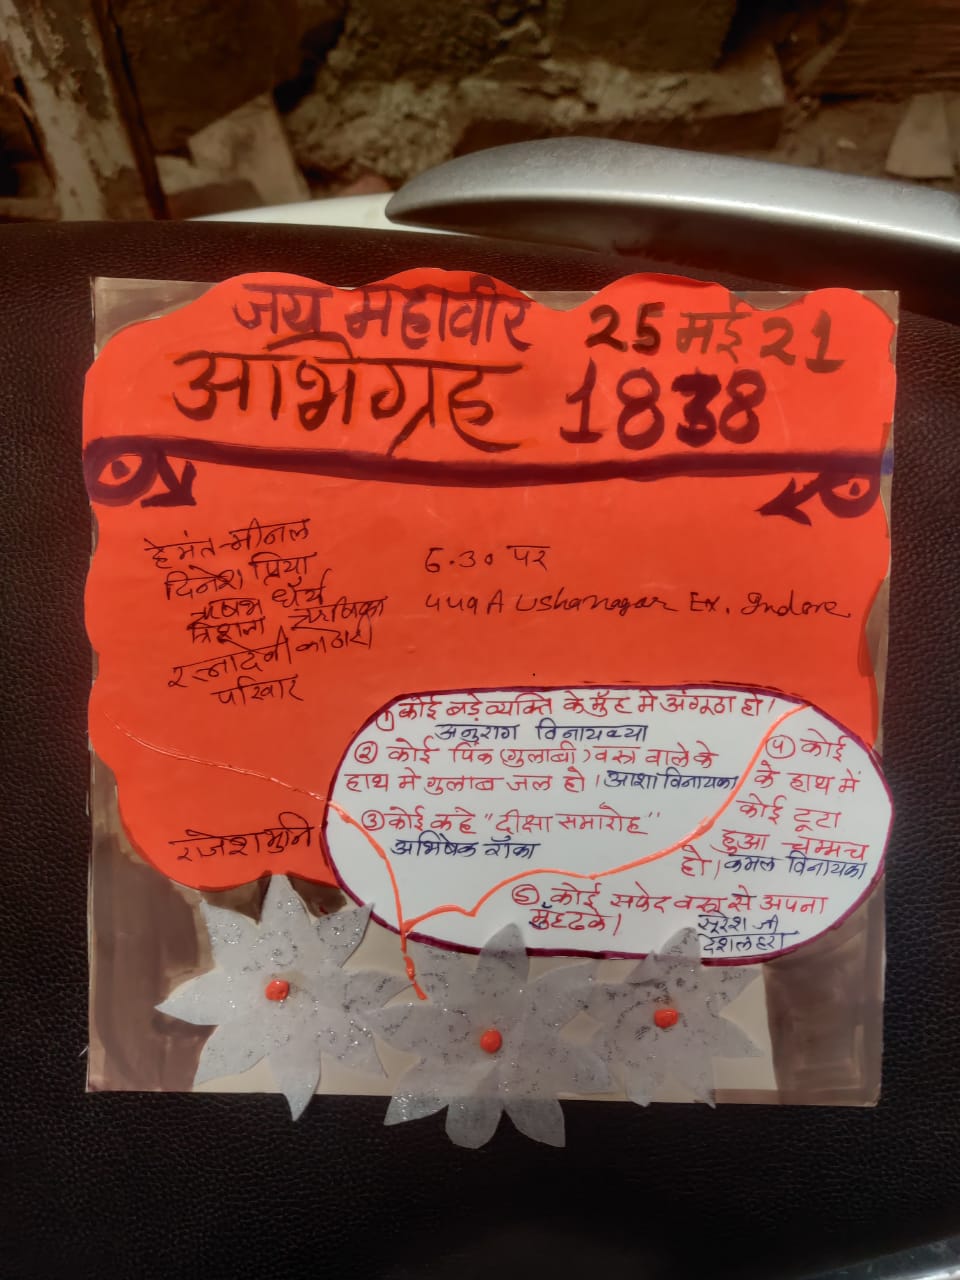 जय महावीर
25 मई 21
अभिग्रह 1838
हेमंत-मीनल
दिनेश प्रिया
ऋषभ धैर्य
त्रिशला, ऋषिका
रत्नादेवी कोठारी
परिवार
6.30 पर
449 A Ushanagar Ex. Indore
राजेशमुनि
① कोई बड़े व्यक्ति के मुँह मे अंगूठा हो।
अनुराग विनायक्या
② कोई पिंक (गुलाबी) वस्त्र वाले के
हाथ मे गुलाब जल हो। आशा विनायका
③ कोई कहे "दीक्षा समारोह"
अभिषेक राँका
④ कोई
के हाथ में
कोई टूटा
हुआ चम्मच
हो। कमल विनायका
⑤ कोई सफेद वस्त्र से अपना
मुँह ढके।
सुरेश जी
देशलहरा